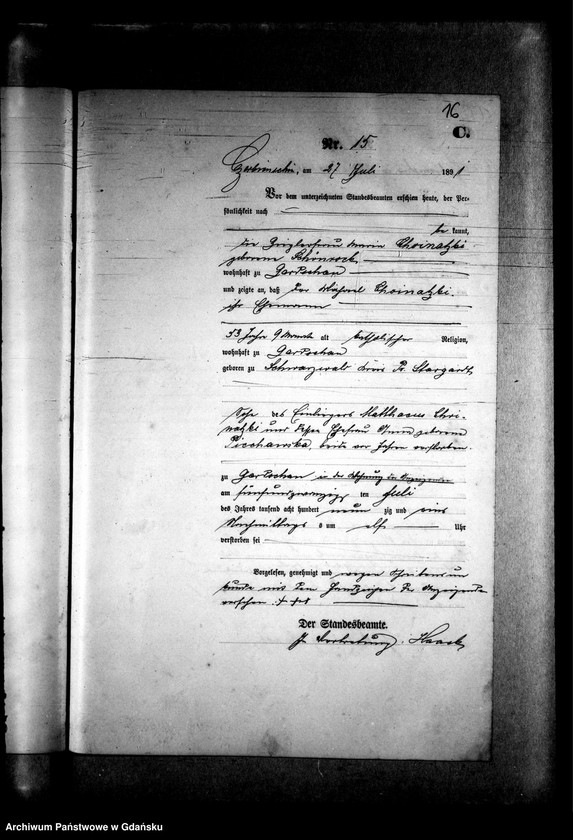 16
C.
Nr. 15
am 27 Juli 1891
Vor dem unterzeichneten Standesbeamten erschien heute, der Per-
sönlichkeit nach
be kannt,
die Zieglerfrau Maria Choinatzki
geborene Schönrock
wohnhaft zu Gardschau
und zeigte an, daß der Michael Choinatzki,
ihr Ehemann
53 Jahre 9 Monate alt katholischer Religion,
wohnhaft zu Gardschau
geboren zu Schwarzwald Kreis Pr. Stargardt,
Sohn des Einliegers Matthaeus Choi-
natzki und dessen Ehefrau Anna geborene
beide vor Jahren verstorben.
zu Gardschau in der Wohnung der Anzeigenden
am fünfundzwanzig ten Juli
des Jahres tausend acht hundert neun zig und eins
Nachmittags um elf Uhr
verstorben sei
Vorgelesen, genehmigt und wegen Schreibensun
kunde mit dem Handzeichen der Anzeigenden
versehen. + + +
Der Standesbeamte.
In Vertretung. Haack
Archiwum Państwowe w Gdańsku